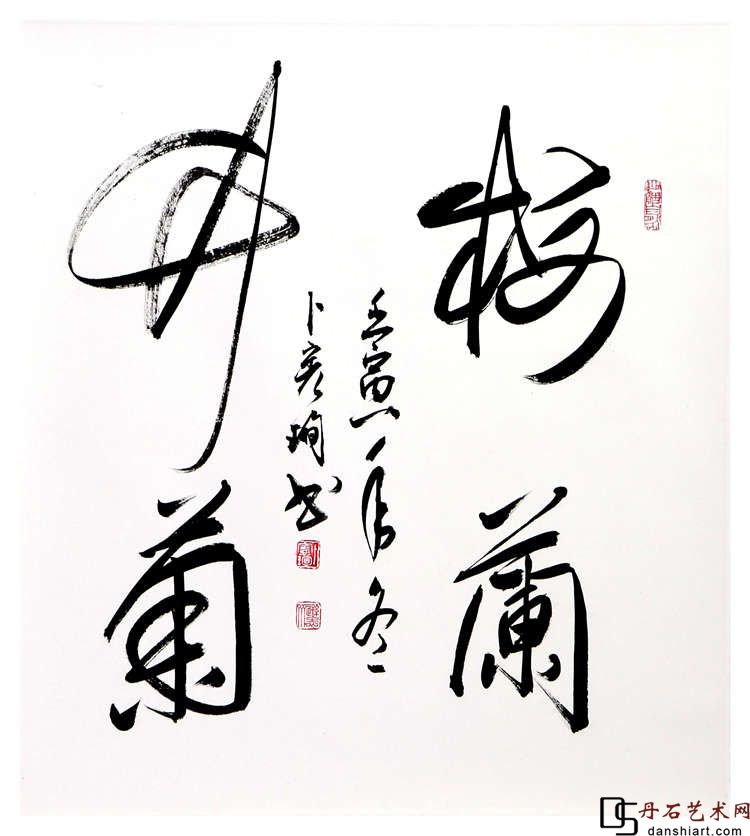 梅蘭
竹菊
壬寅年冬
卜彦珣书
丹石艺术网
danshiart.com